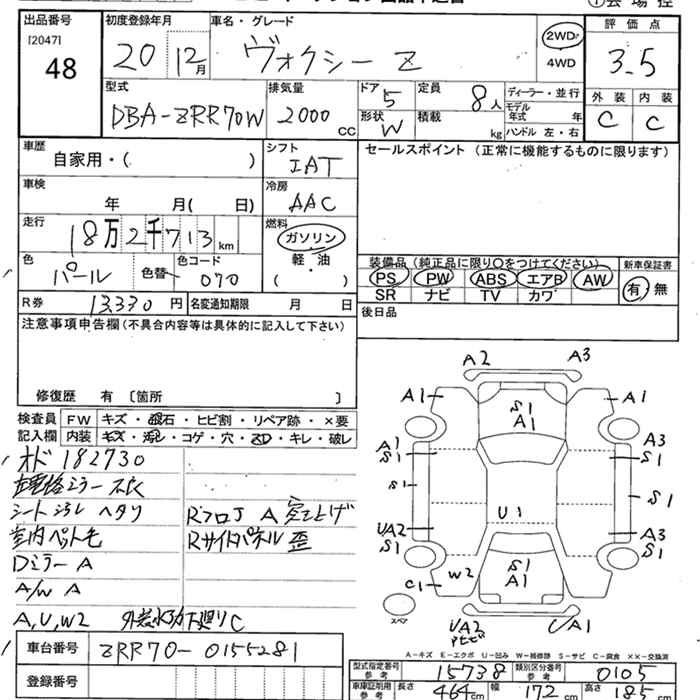 出品番号 初度登録年月 車名・グレード 評価点
[2047]
48 20 12月 ヴォクシー Z 2WD 4WD 3.5
型式 排気量 ドア 定員 ディーラー・並行 外装 内装
DBA-ZRR70W 2000 CC 5 8人 モデル年式 年 C C
形状 W 積載 kg ハンドル 左・右
車歴 シフト セールスポイント (正常に機能するものに限ります)
自家用・( ) IAT
車検 冷房
年 月( 日) AAC
走行 燃料
18万2千713km ガソリン
色 色替 色コード 軽・油 装備品(純正品に限り○をつけてください) 新車保証書
パール 070 ( ) PS PW ABS エアB AW 有・無
SR ナビ TV カワ
R券 13,330円 名変通知期限 月 日 後日品
注意事項申告欄(不具合内容等は具体的に記入して下さい)
修復歴 有 [箇所 ]
検査員 FW キズ・飛石・ヒビ割・リペア跡・×要
記入欄 内装 キズ・汚レ・コゲ・穴・スレ・キレ・破レ
オド182730
シート ヘタリ RフロJ A
室内ペット毛 Rサイドパネル 歪
Dミラー A
A/W A
A,U,W2
車台番号 ZRR70-0155281
登録番号
A2 A3
A1 S1 A1 A1
A1 S1 A3 S1
S1 S1
U1
UA2 S1 A3 S1
C1 W2 S1 A1
スペア UA2 UA1
A-キズ E-エクボ U-凹み W-補修跡 S-サビ C-腐食 ××-交換済
型式指定番号 参考 15738 類別区分番号 参考 0105
車庫証明用 参考 長さ 464cm 幅 172cm 高さ 185cm